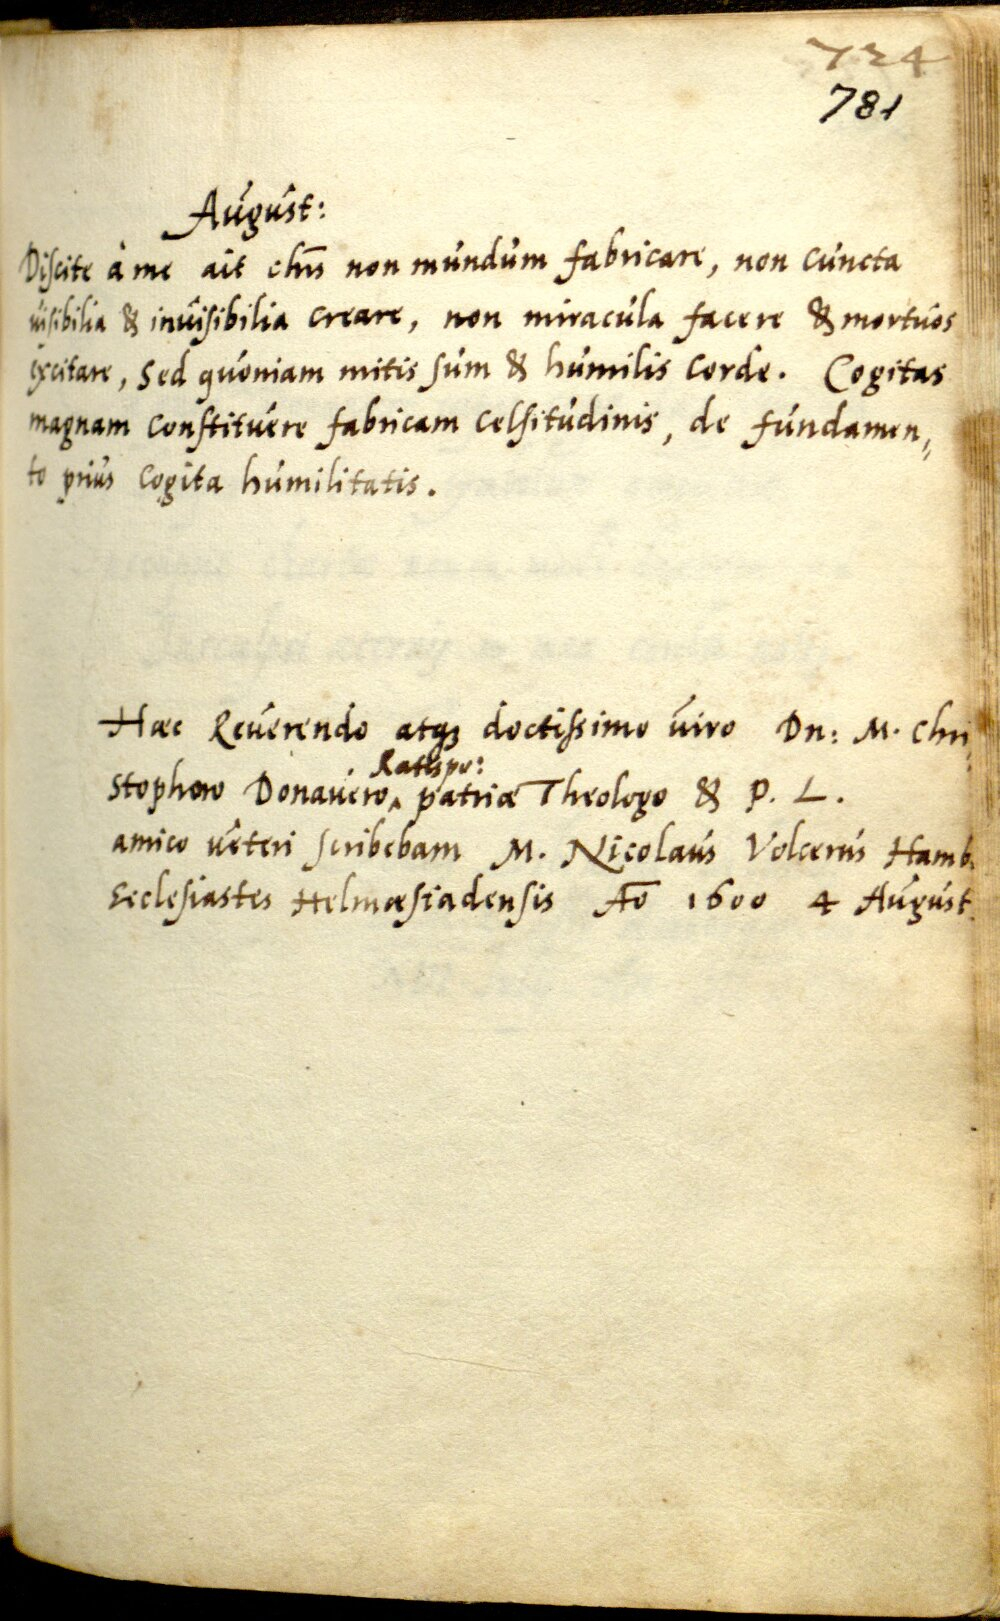 734
781
August:
Discite à me ait chūs non mundum fabricare, non cuncta
visibilia & invisibilia creare, non miracula facere & mortuos
excitare, Sed quoniam mitis sum & humilis corde. Cogitas
magnam constituere fabricam celsitudinis, de fundamen„
to prius cogita humilitatis.
Hæc Reverendo atq; doctissimo viro Dn: M. Chri
Ratispo:
stophoro Donavero‸ patriæ Theologo & P. L.
amico veteri scribebam M. Nicolaus Volcerus Hamb.
Ecclesiastes Helmæstadensis Aō 1600 4 August.